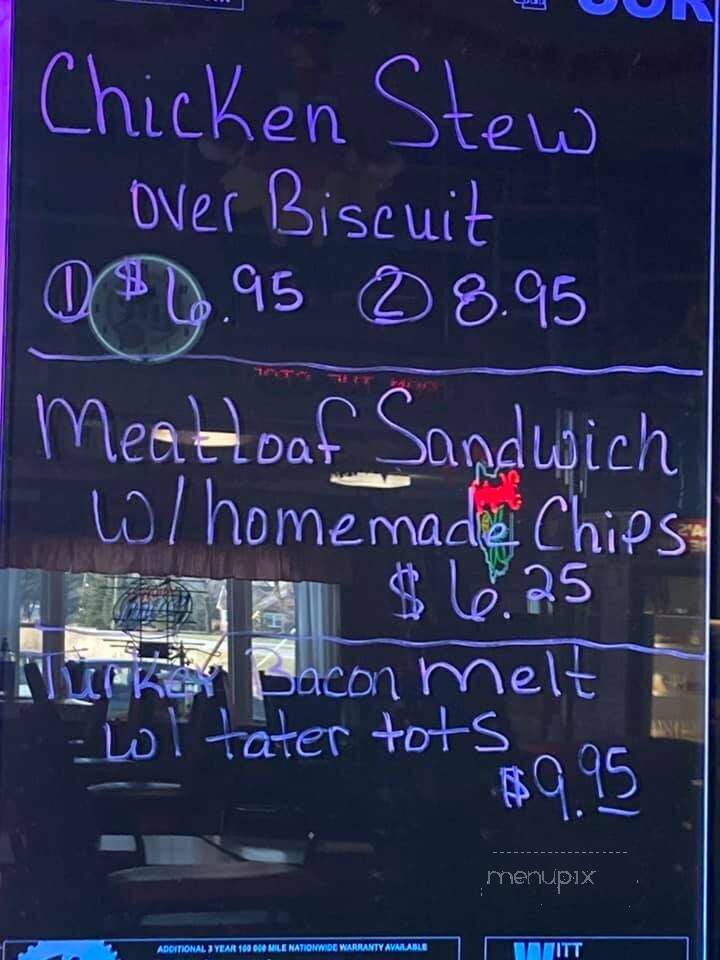 Chicken Stew
over Biscuit
① $6.95 ② 8.95
Meatloaf Sandwich
w/homemade Chips
$6.25
Turkey Bacon melt
w/ tater tots
$9.95
menupix
ADDITIONAL 3 YEAR 100 000 MILE NATIONWIDE WARRANTY AVAILABLE
WITT